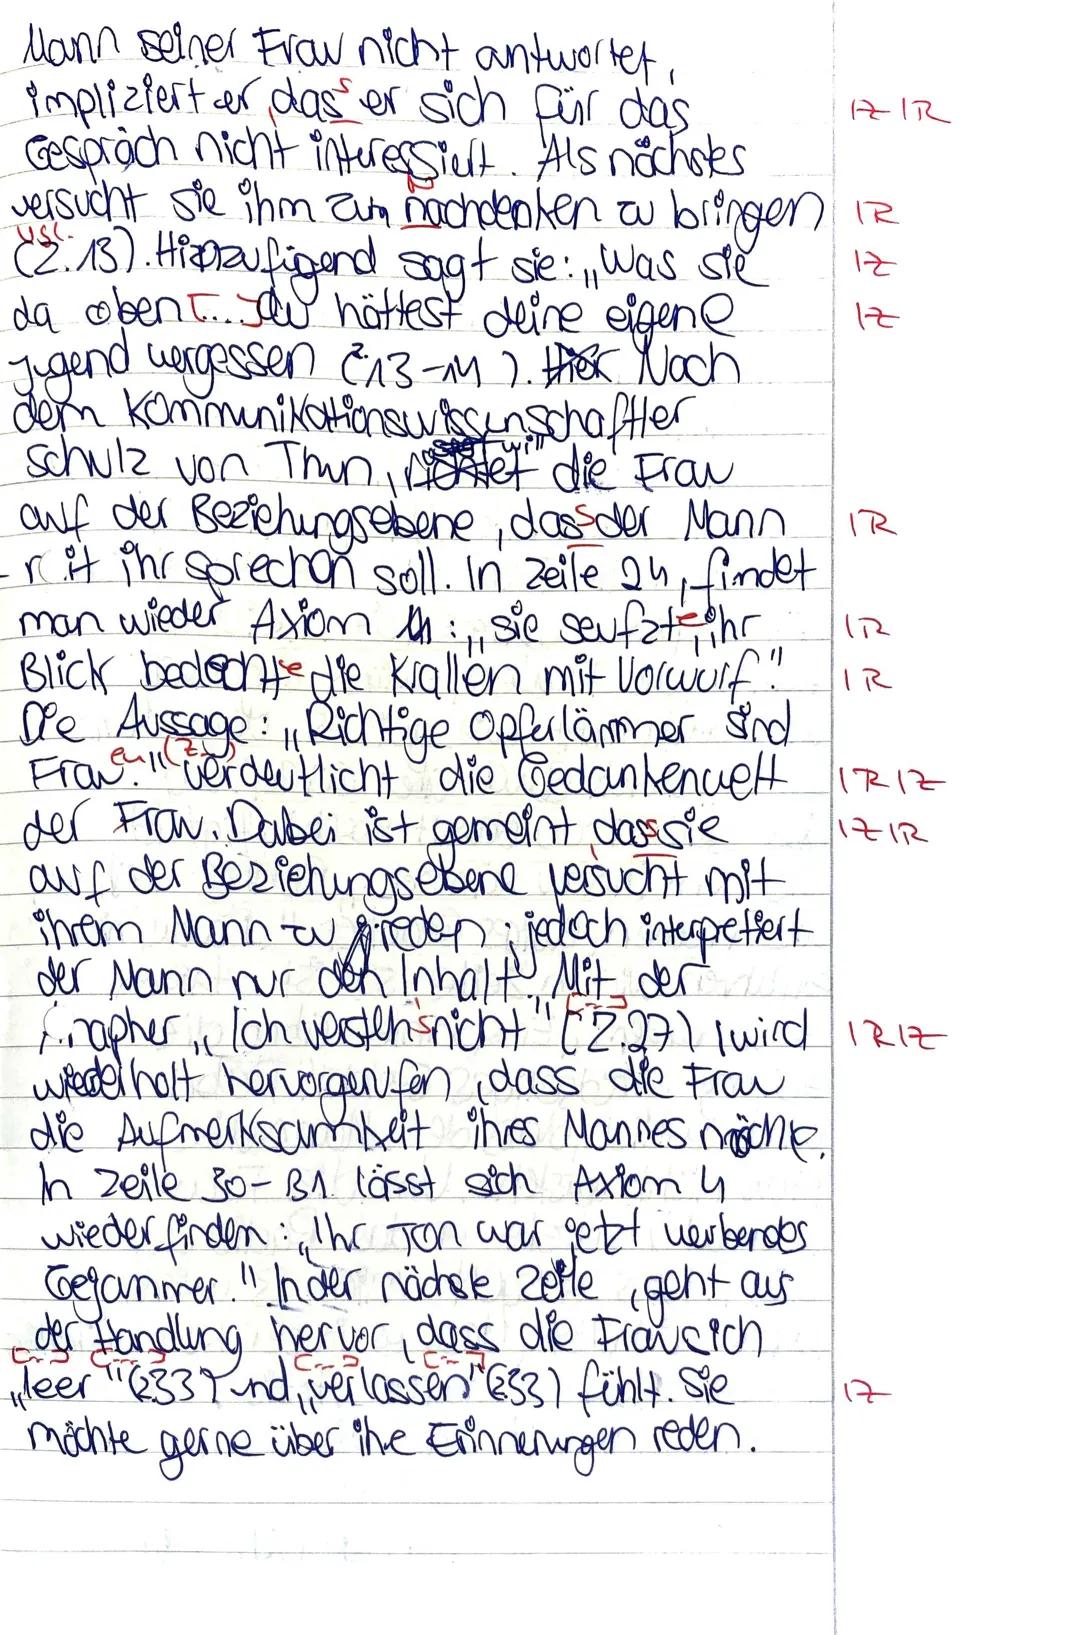 Mann seiner Frau nicht antwortet,
impliziert er, dass er sich für das IZ IR
Gespräch nicht interessiert. Als nächstes
versucht sie ihm zum Nachdenken zu bringen IR
(Z. 13). Hinzufügend sagt sie: „Was sie IZ
da oben [...] du hättest deine eigene IZ
Jugend vergessen (Z. 13-14). Nach
dem Kommunikationswissenschaftler
Schulz von Thun, will die Frau
auf der Beziehungsebene, dass der Mann IR
mit ihr sprechen soll. In Zeile 24, findet
man wieder Axiom 4: „sie seufzte, ihr IR
Blick bedachte die Krallen mit Vorwurf." IR
Die Aussage: „Richtige Opferlämmer sind
Frauen." (Z. ) verdeutlicht die Gedankenwelt IR IZ
der Frau. Dabei ist gemeint, dass sie IZ IR
auf der Beziehungsebene versucht mit
ihrem Mann zu reden, jedoch interpretiert
der Mann nur den Inhalt. Mit der
„Ich versteh's nicht [---]" (Z.27), wird IR IZ
wiederholt hervorgerufen, dass die Frau
die Aufmerksamkeit ihres Mannes möchte.
In Zeile 30-31 lässt sich Axiom 4
wiederfinden: „Ihr Ton war jetzt werbendes
Gejammer." In der nächste Zeile, geht aus
der Handlung hervor, dass die Frau sich
„[---] leer [---]" (Z.33) und „[---] verlassen [---]" (Z.33) fühlt. Sie IZ
möchte gerne über ihre Erinnerungen reden.